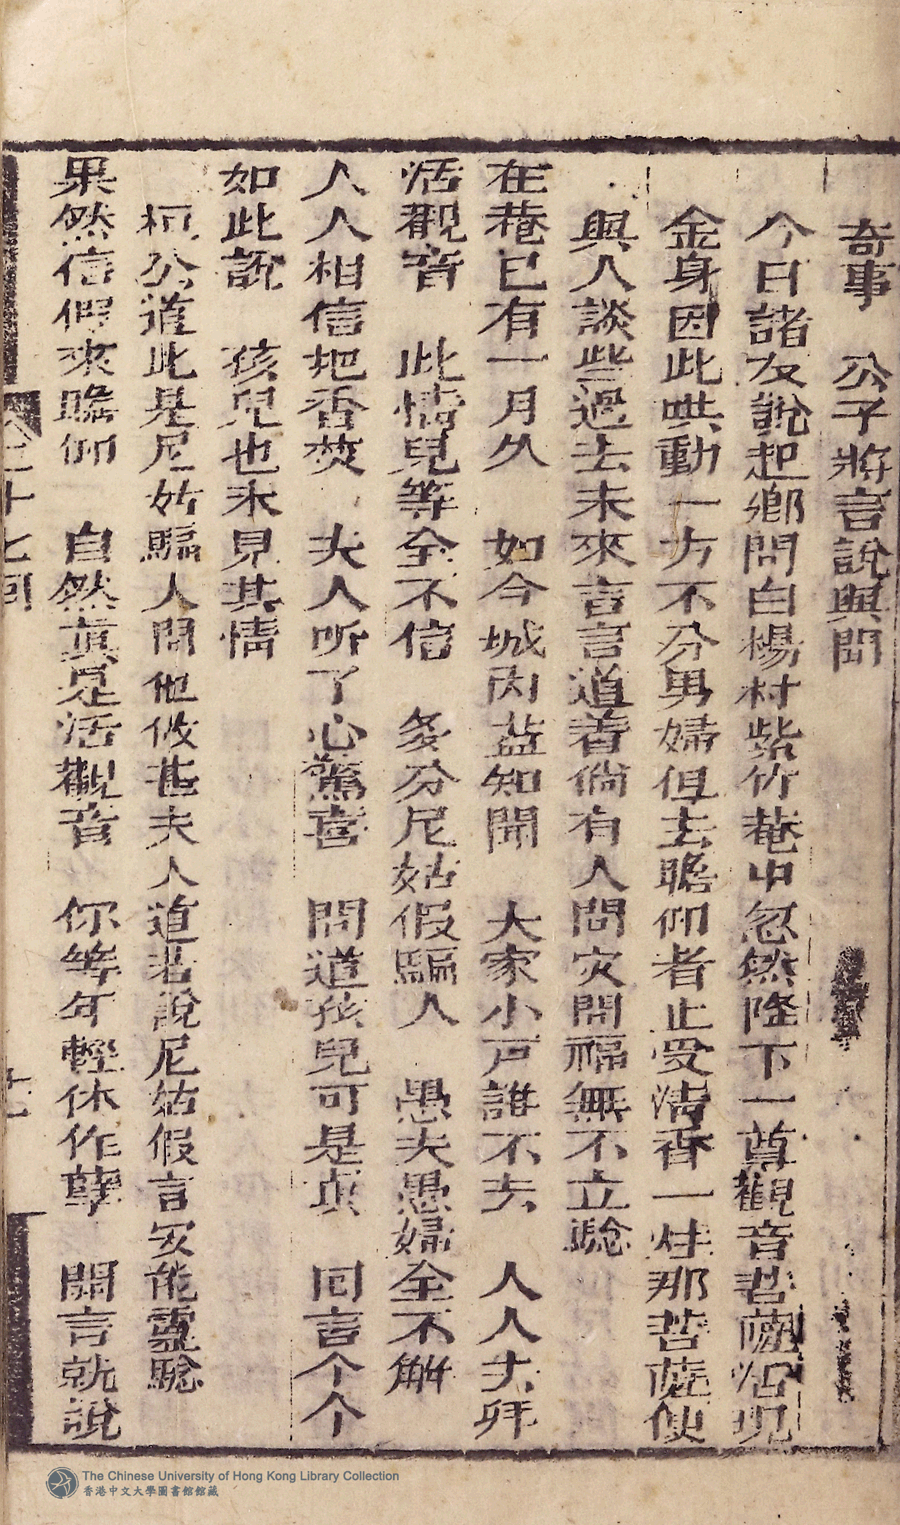 奇事　公子將言說與聞
今日諸友說起鄉間白楊村紫竹菴中忽然降下一尊觀音菩薩活現
金身因此哄動一方不分男婦但去瞻仰者止受清香一炷那菩薩便
與人談些過去未來言言道着倘有人問灾問福無不立騐
在菴已有一月久　如今城内盡知聞　大家小戸誰不去　人人去拜
活觀音　此情兒等全不信　多分尼姑假騙人　愚夫愚婦全不解
人人相信把香焚　夫人听了心驚喜　問道孩兒可是真　囘言个个
如此說　孩兒也未見其情
柯公道此是尼姑騙人問他做甚夫人道若說尼姑假言安能靈騐
果然信假來瞻仰　自然真是活觀音　你等年輕休作孽　開言就說
卷二十七囘
十一
The Chinese University of Hong Kong Library Collection
香港中文大學圖書館館藏